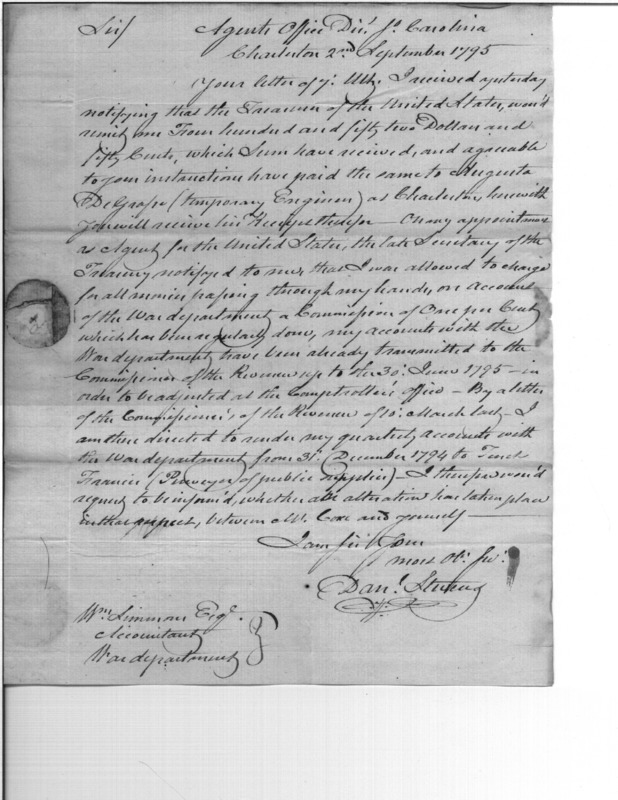 Sir/ Agents Office Dist. So. Carolina
Charleston 2nd September 1795
Your letter of Ulto. I received yesterday
notifying that the Treasurer of the United States, wou'd
remit me Four hundred and fifty two Dollars and
fifty Cents, which Sum have received, and agreeable
to your instruction have paid the same to Augusta
DeGrasse (temporary Engineer) at Charleston, herewith
you will receive his Receipt therefor — On my appointment
as Agent for the United States, the late Secretary of the
Treasury notifyed to me, that I was allowed to charge
for all monies passing through my hands, on account
of the War department a Commission of One per Cent,
which has been regularly done, my accounts with the
War department, have been already transmitted to the
Commissioner of the Revenue up to the 30th. June 1795 — in
order to be adjusted at the Comptroller's office — By a letter
of the Commissioner's of the Revenue of 10th. March last — I
am there directed to render my quarterly accounts with
the War department from 31st. December 1794 to Tench
Francis (Purveyor of public supplies) — I therefore wou'd
request to be inform'd, whether any alteration has taken place
in that respect, between Mr. Coxe and yourself —
I am Sir Your
most Ob. Sv.
Danl. Stevens
Wm. Simmons Esqr.
Accountant
War department